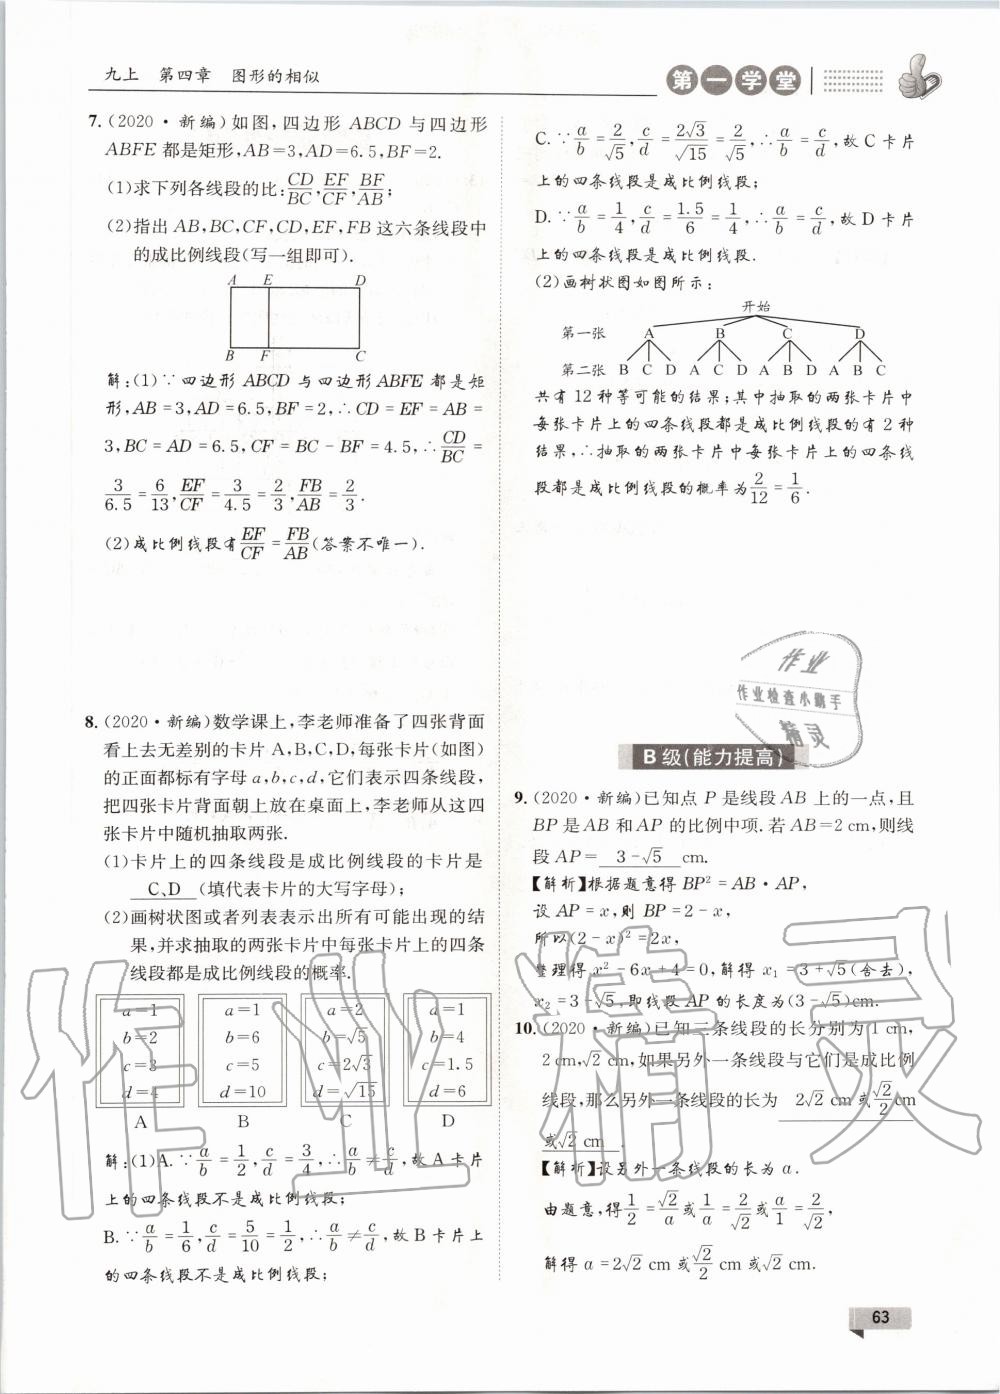 九上 第四章 图形的相似
第一学堂
7.(2020·新编)如图,四边形 ABCD 与四边形
ABFE 都是矩形,AB=3,AD=6.5,BF=2.
(1)求下列各线段的比:CD/BC,EF/CF,BF/AB;
(2)指出 AB,BC,CF,CD,EF,FB 这六条线段中
的成比例线段(写一组即可).
A E D
B F C
解:(1)∵四边形 ABCD 与四边形 ABFE 都是矩
形,AB=3,AD=6.5,BF=2,∴CD=EF=AB=
3,BC=AD=6.5,CF=BC-BF=4.5,∴CD/BC=
3/6.5=6/13,EF/CF=3/4.5=2/3,FB/AB=2/3.
(2)成比例线段有EF/CF=FB/AB(答案不唯一).
8.(2020·新编)数学课上,李老师准备了四张背面
看上去无差别的卡片 A,B,C,D,每张卡片(如图)
的正面都标有字母 a,b,c,d,它们表示四条线段,
把四张卡片背面朝上放在桌面上,李老师从这四
张卡片中随机抽取两张.
(1)卡片上的四条线段是成比例线段的卡片是
C、D (填代表卡片的大写字母);
(2)画树状图或者列表表示出所有可能出现的结
果,并求抽取的两张卡片中每张卡片上的四条
线段都是成比例线段的概率.
a=1 a=1 a=2 a=1
b=2 b=6 b=√5 b=4
c=3 c=5 c=2√3 c=1.5
d=4 d=10 d=√15 d=6
A B C D
解:(1)A.∵a/b=1/2,c/d=3/4,∴a/b≠c/d,故A卡片
上的四条线段不是成比例线段;
B.∵a/b=1/6,c/d=5/10=1/2,∴a/b≠c/d,故B卡片上
的四条线段不是成比例线段;
C.∵a/b=2/√5,c/d=2√3/√15=2/√5,∴a/b=c/d,故C卡片
上的四条线段是成比例线段;
D.∵a/b=1/4,c/d=1.5/6=1/4,∴a/b=c/d,故D卡片
上的四条线段是成比例线段.
(2)画树状图如图所示:
开始
第一张 A B C D
第二张 B C D A C D A B D A B C
共有12种等可能的结果;其中抽取的两张卡片中
每张卡片上的四条线段都是成比例线段的有2种
结果,∴抽取的两张卡片中每张卡片上的四条线
段都是成比例线段的概率为2/12=1/6.
作业
作业检查小助手
精灵
B级(能力提高)
9.(2020·新编)已知点 P 是线段 AB 上的一点,且
BP 是 AB 和 AP 的比例中项.若 AB=2 cm,则线
段 AP= 3-√5 cm.
【解析】根据题意得 BP²=AB·AP,
设 AP=x,则 BP=2-x,
所以(2-x)²=2x,
整理得 x²-6x+4=0,解得 x₁=3+√5(舍去),
x₂=3-√5,即线段 AP 的长度为(3-√5)cm.
10.(2020·新编)已知三条线段的长分别为 1 cm,
2 cm,√2 cm,如果另外一条线段与它们是成比例
线段,那么另外一条线段的长为 2√2 cm或√2/2 cm
或√2 cm .
【解析】设另外一条线段的长为 a.
由题意,得1/2=√2/a或1/a=2/√2或a/1=2/√2,
解得 a=2√2 cm或√2/2 cm或√2 cm.
作业精灵
63